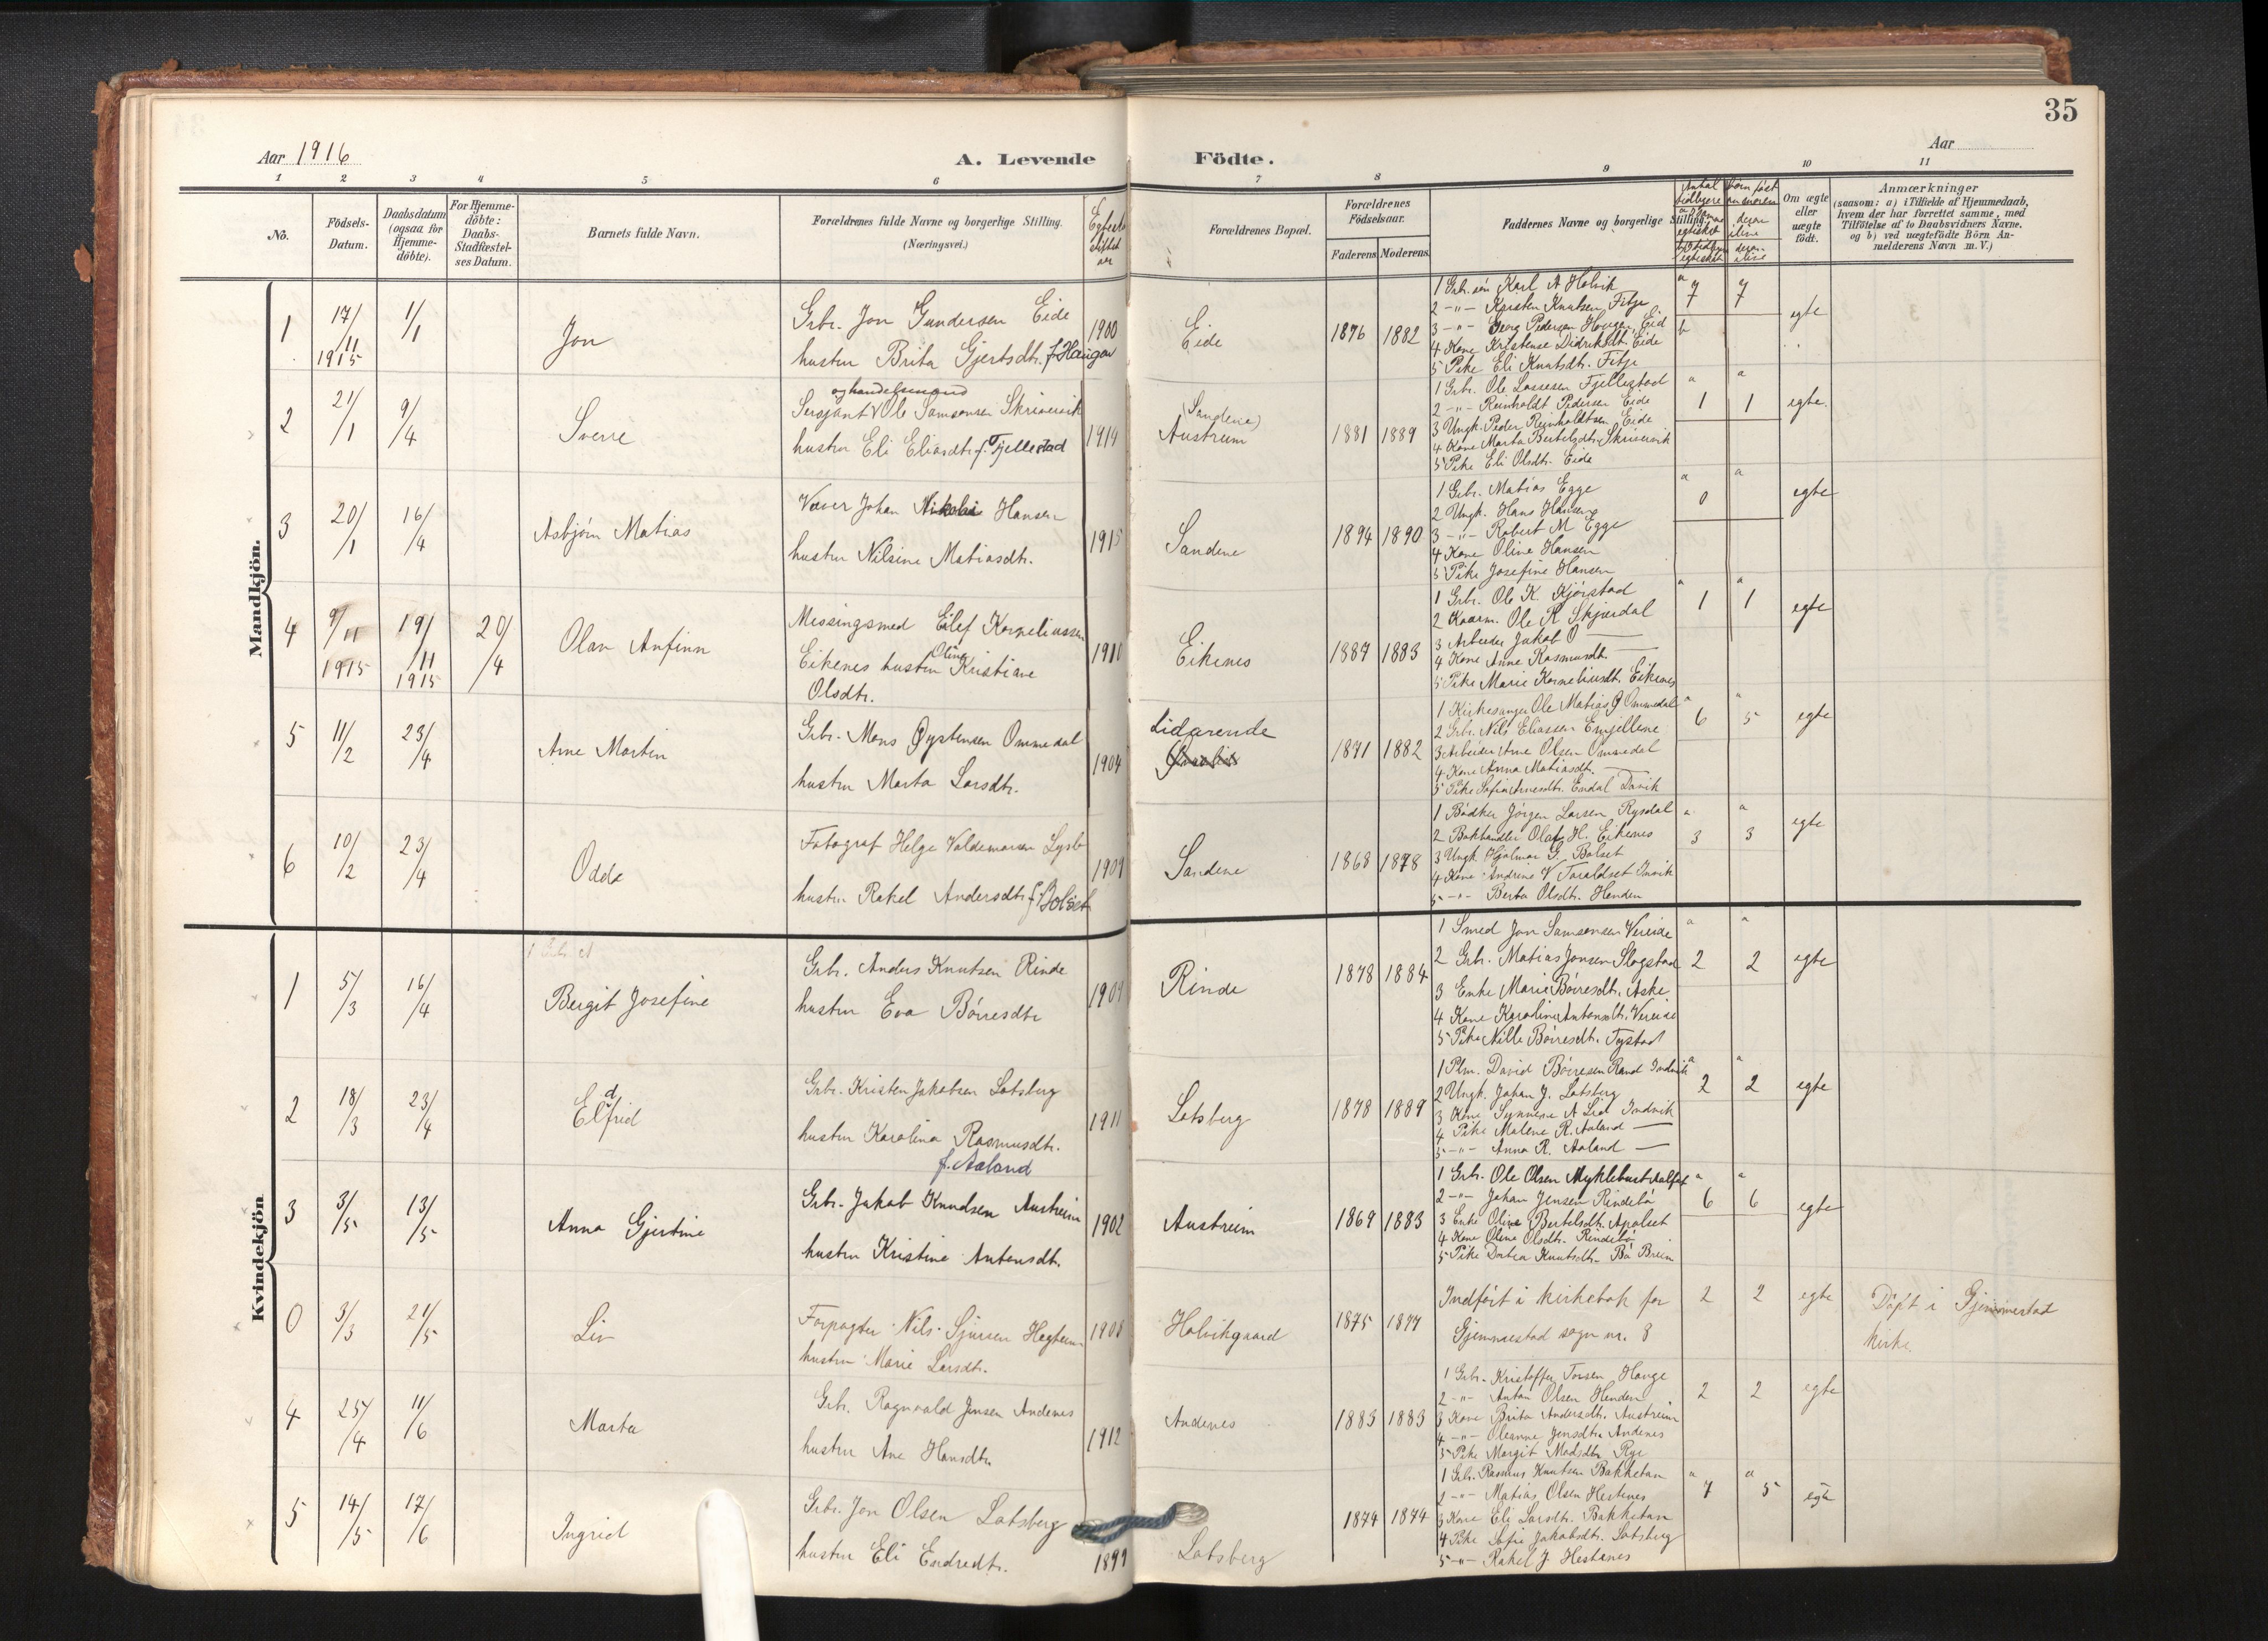 35
Aar 1916
A. Levende
Födte.
Aar
1 2 3 4 5 6 7 8 9 10 11
No.
Födsels-
Datum.
Daabsdatum
(ogsaa for
Hjemme-
döbte).
For Hjemme-
döbte:
Daabs-
Stadfæstel-
ses Datum.
Barnets fulde Navn.
Forældrenes fulde Navne og borgerlige Stilling.
(Næringsvei.)
Forældrenes Bopæl.
Forældrenes
Födselsaar.
Faderens
Moderens
Faddernes Navne og borgerlige Stilling.
Om ægte
eller
uægte
födt.
Anmærkninger
(saasom: a) i Tilfælde af Hjemmedaab,
hvem der har forrettet samme, med
Tilföielse af to Daabsvidners Navne.
og b) ved uægtefödte Börn An-
melderens Navn m. V.)
Mandkjön.
1
17/11
1915
1/1
Jon
Grbr. Jon Gundersen Eide
hustru Brita Gjertsdtr. f. Haugen
1900
Eide
1876 1882
1 Grbr. søn Karl A Holvik
2 -"- Karsten Knutsen Fitje
3 -"- Georg Pedersen Haugen, Eid
4 Kone Kristense Didriksdt. Eide
5 Pike Eli Knutsdtr. Fitje
a 7 7
b
egte
2
21/1
9/4
Sverre
og handelsmand
Sersjant Ole Samsonsen Skrivervik
hustru Eli Eliasdtr. f. Fjellestad
1914
(Sandene)
Austreim
1881 1889
1 Grbr. Ole Lassesen Fjellestad
2 -"- Reinholdt Pedersen Eide
3 Ungk. Peder Reinholdtsen Eide
4 Kone Marta Bertelsdtr. Skrivervik
5 Pike Eli Olsdtr. Eide
a a
1 1
egte.
3
20/1
16/4
Asbjörn Matias
Væver Johan Nikolai Hansen
hustru Nilsine Matiasdtr.
1915
Sandene
1894 1890
1 Grbr. Matias Egge
2 Ungk. Hans Hansen
3 -"- Robert M Egge
4 Kone Oline Hansen
5 Pike Josefine Hansen
a a
0
egte
4
9/11
1915
19/11
1915
20/4
Olav Anfinn
Messingsmed Eilef Korneliussen
Eikenes hustru Oline Kristiane
Olsdtr.
1910
Eikenes
1887 1883
1 Grbr. Ole K Kjörstad
2 Kaarm. Ole R Skjærdal
3 Arbeider Jakob O —
4 Kone Anne Rasmusdt. —
5 Pike Marie Korneliusdt. Eikenes
a a
1 1
egte
5
11/2
23/4
Arne Martin
Grbr. Mons Øystensen Ommedal
hustru Marta Larsdtr.
1904
Lidarende
1871 1882
1 Kirkesanger Ole Matias G Ommedal
2 Grbr. Nils Eliassen Emjellene
3 Arbeider Arne Olsen Ommedal
4 Kone Anna Matiasdtr. —
5 Pike Sofia Arnesdtr. Endal Davik
a a
6 5
egte
6
10/2
23/4
Odd
Fotograf Helge Valdemarsen Lysb
hustru Rakel Andersdtr. f. Bolset
1904
Sandene
1868 1878
1 Bødker Jörgen Larsen Rysdal
2 Bokhandler Olaf H. Eikenes
3 Ungk. Hjalmar G. Bolset
4 Kone Andrine V. Taraldset Invik
5 -"- Berta Olsdtr. Henden
a a
3 3
egte
Kvindekjön
1
5/3
16/4
Bergit Josefine
Grbr. Anders Knutsen Rinde
hustru Eva Börresdtr
1904
Rinde
1878 1884
1 Smed Jon Samsonsen Vereide
2 Grbr. Matias Jonsen Slagstad
3 Enke Marie Börresdtr. Aske
4 Kone Karoline Antonsdtr. Vereide
5 Pike Nille Börresdt. Tystad
a a
2 2
egte
2
18/3
23/4
Elfrid
d
Grbr. Kristen Jakobsen Lotsberg
hustru Karolina Rasmusdtr.
f. Aaland
1911
Lotsberg
1878 1889
1 Plm. David Börresen Rand Indvik
2 Ungk. Johan J. Lotsberg
3 Kone Synneve A Lid Indvik
4 Pike Malene R. Aaland —
5 -"- Anna R. Aaland —
a a
2 2
egte
3
3/5
13/5
Anna Gjertine
Grbr. Jakob Knudsen Austreim
hustru Kristine Antonsdtr.
1902
Austreim
1869 1883
1 Grbr. Ole Olsen Myklebust Aalfot
2 -"- Johan Jensen Rindebö
3 Enke Oline Bertelsdtr. Apalset
4 Kone Oline Olsdtr. Rindebö
5 Pike Dortea Knutsdtr. Bö Breim
a a
6 6
egte
0
3/3
21/5
Liv
Forpagter Nils Sjursen Hagheim
hustru Marie Larsdtr.
1908
Holvikgaard
1875 1877
Indfört i kirkebok for
Gjemmestad sogn nr. 8
2 2
egte
Døpt i Gjemmestad
kirke.
4
25/4
11/6
Marta
Grbr. Ragnvald Jensen Andenes
hustru Ane Hansdtr.
1912
Andenes
1883 1883
1 Grbr. Kristoffer Torsen Hauge
2 -"- Anton Olsen Henden
3 Kone Brita Andersdtr. Austreim
4 -"- Oleanne Jensdtr. Andenes
5 Pike Margit Madsdtr. Rye
2 2
egte
5
14/5
17/6
Ingrid
Grbr. Jon Olsen Lotsberg
hustru Eli Endredtr.
1899
Lotsberg
1874 1874
1 Grbr. Rasmus Knutsen Bakketun
2 -"- Matias Olsen Hestenes
3 Kone Eli Larsdtr. Bakketun
4 Pike Sofie Jakobsdtr. Lotsberg
5 -"- Rakel J Hestanes
a a
7 5
egte